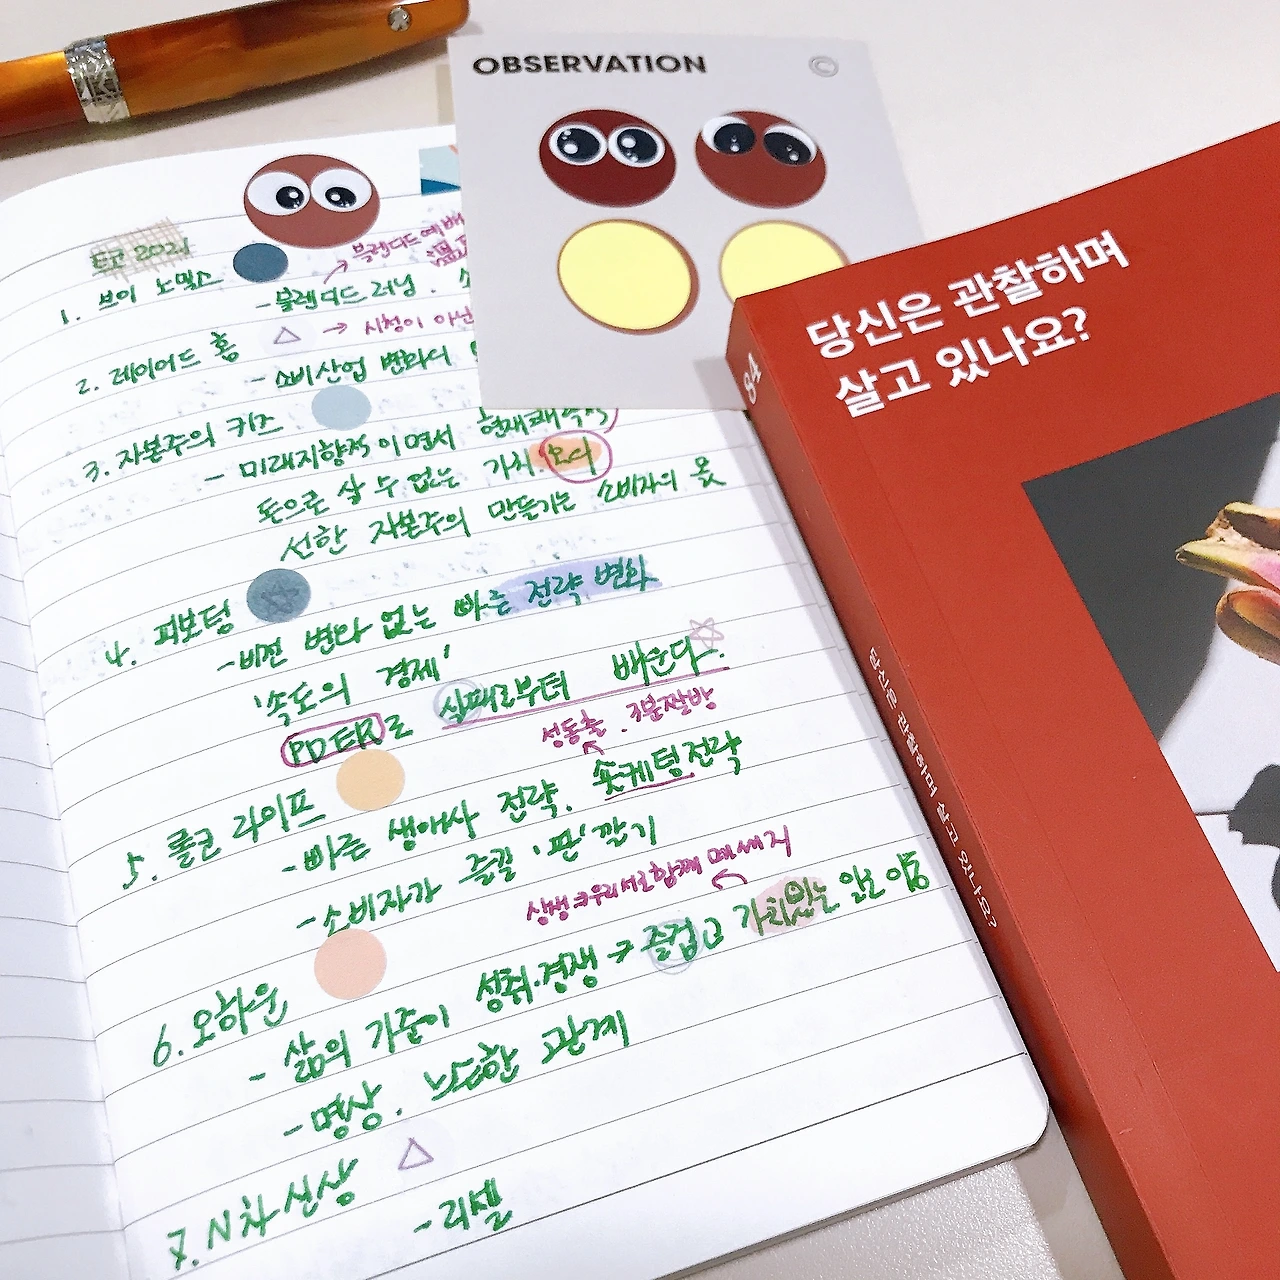 OBSERVATION
©
트코 2021
블렌디드 예배
1. 브이 노믹스
- 블렌디드 러닝.
△ → 시청이 아닌
2. 레이어드 홈
- 소비산업 변화다
3. 자본주의 키즈
- 미래지향적이면서 현재쾌락적
돈으로 살 수 없는 가치.
선한 자본주의 만들기는 소비자의 몫
4. 피보팅
- 비전 변화 없는 빠른 전략 변화
'속도의 경제'
PDER로 실패로부터 배운다.
성동출. 3분짤방
5. 롤코 라이프
- 빠른 생애사 전략. 숏케팅전략
- 소비자가 즐길 '판' 깔기
상생 → 우리 서로 함께 메세지
6. 오하운
- 삶의 기준이 성취.경쟁 → 즐겁고 가치있는 일로 이동
- 명상. 느슨한 관계
7. N차신상 △
- 리셀
당신은 관찰하며
살고 있나요?
84
당신은 관찰하며 살고 있나요?